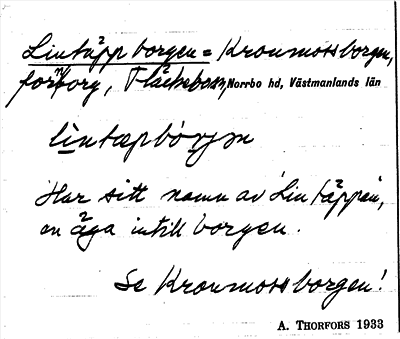 Lintäppborgen = Kronmossborgen,
fornborg, Fläckebo sn, Norrbo hd, Västmanlands län
lintæpbórjən
Har sitt namn av "Lintäppan",
en äga intill borgen.
Se Kronmossborgen!
A. THORFORS 1933